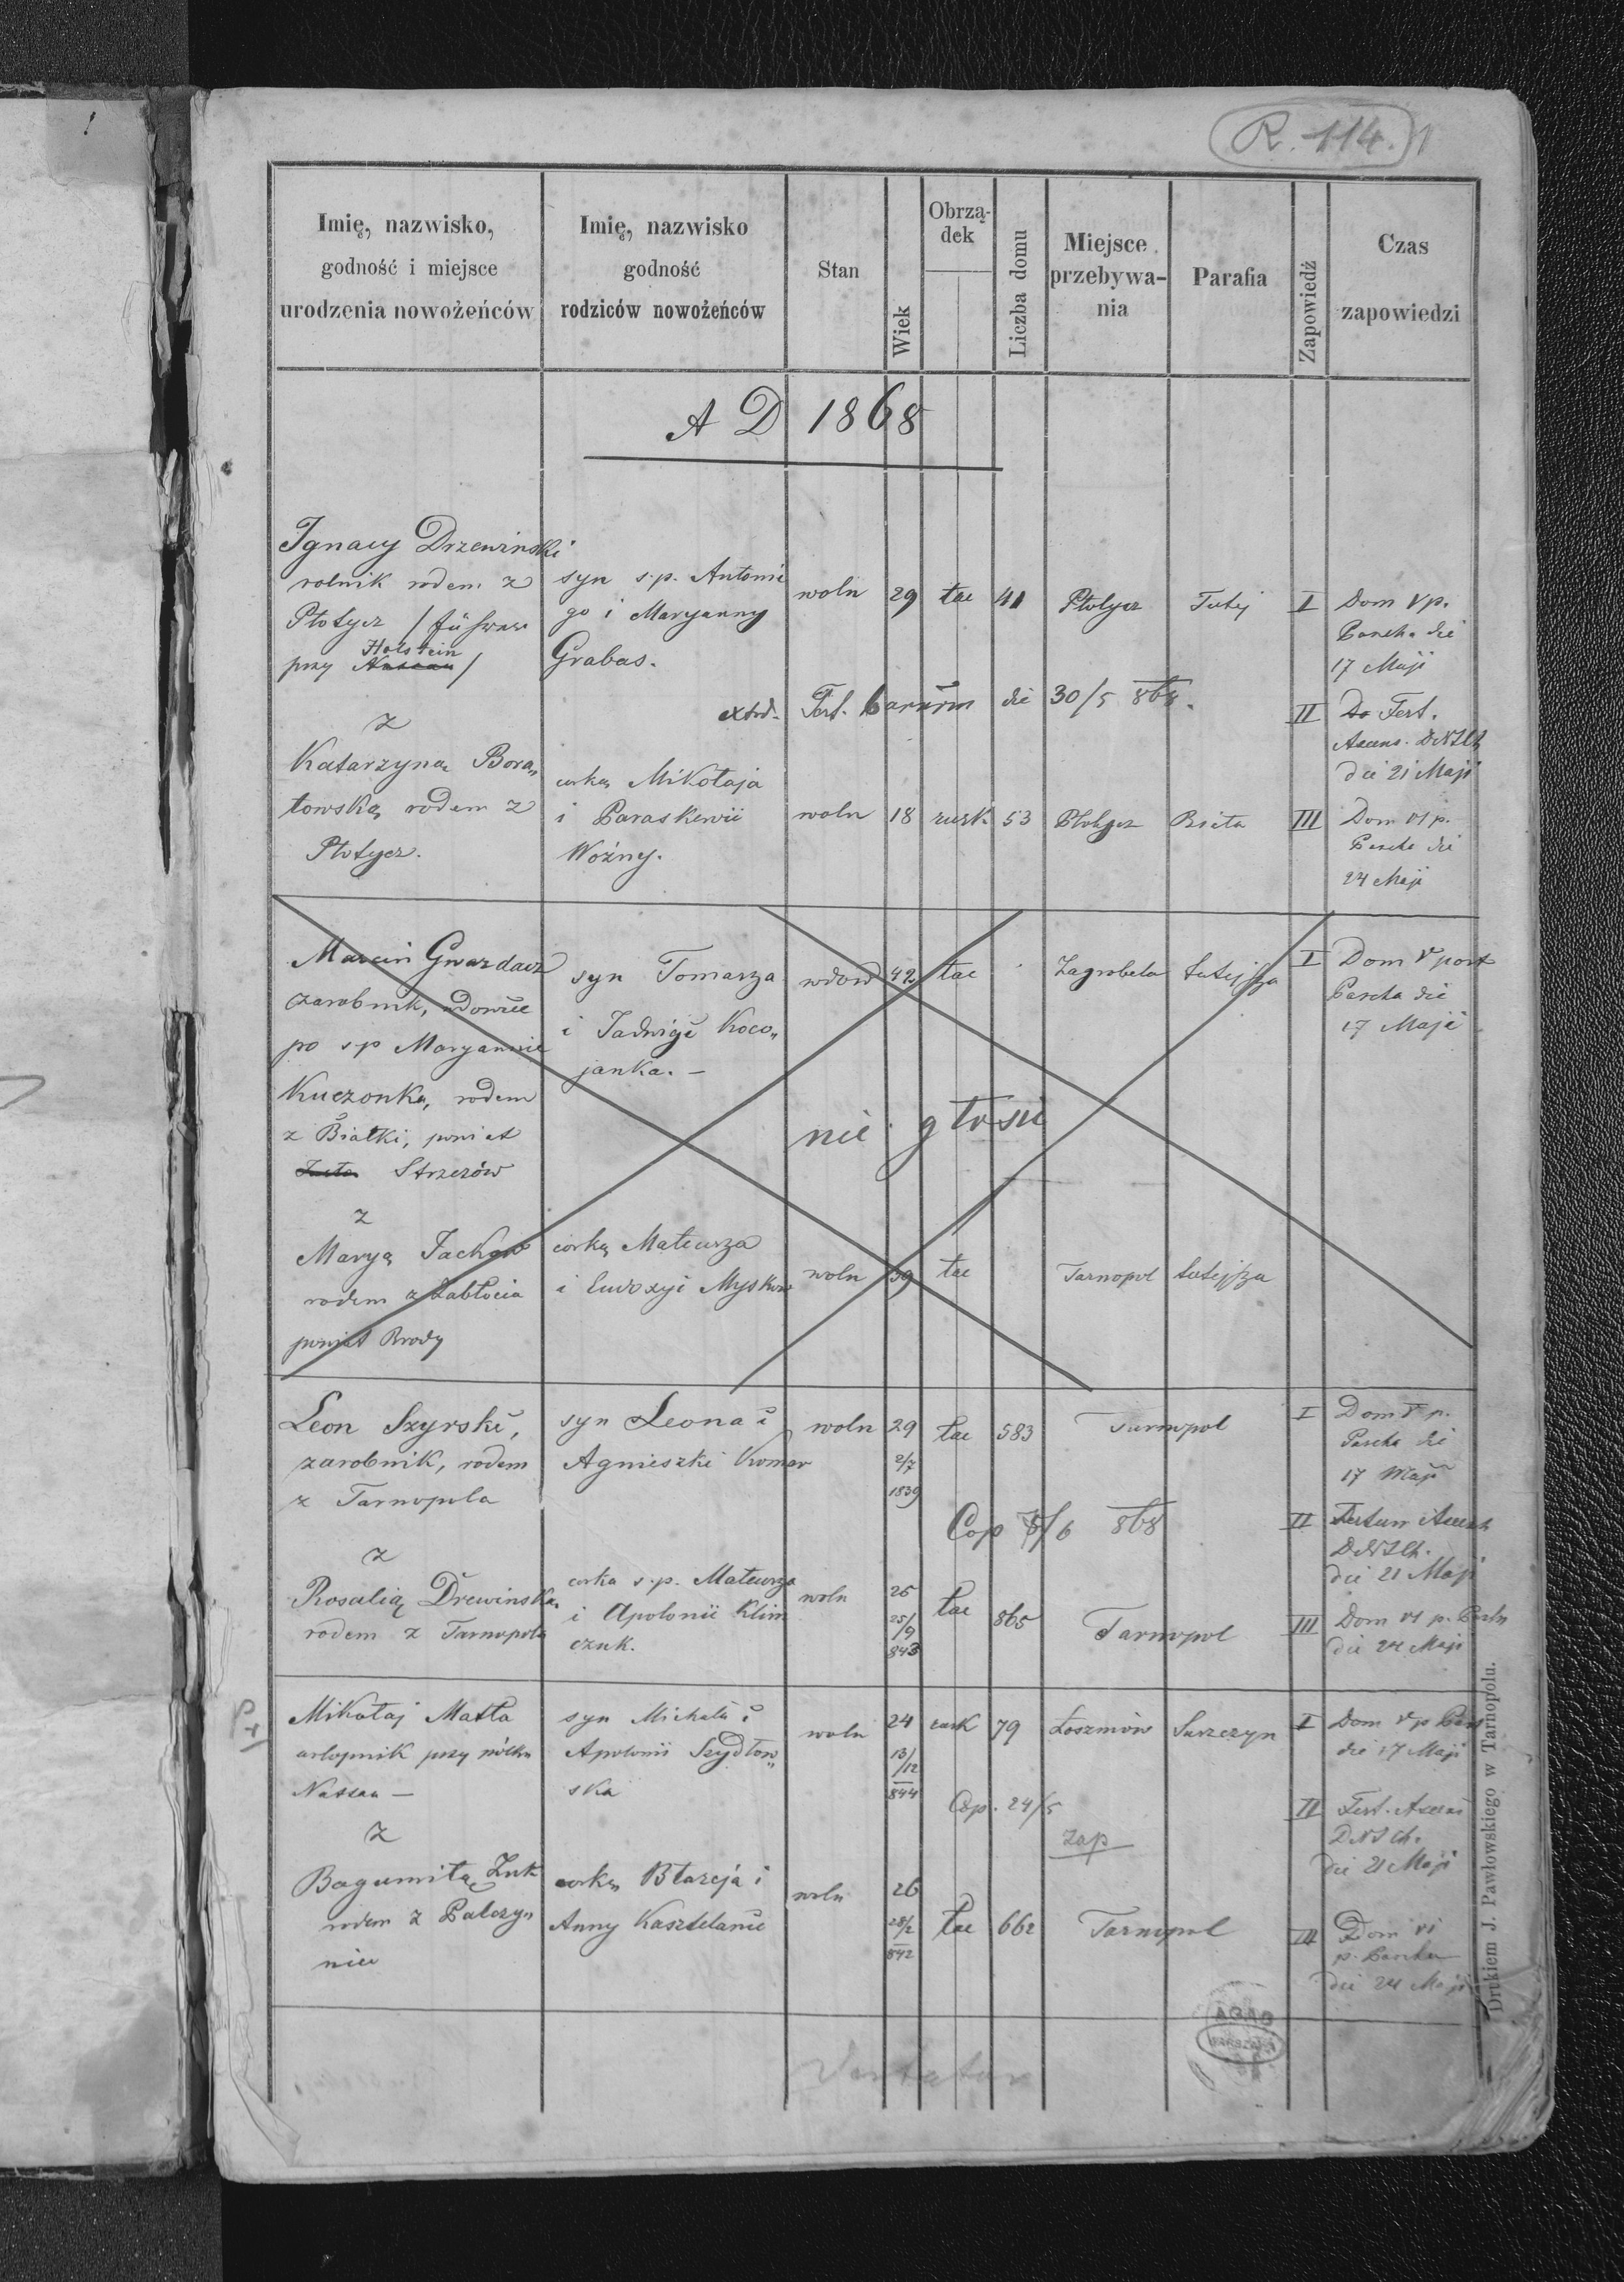 R. 114. 1
Imię, nazwisko,
godność i miejsce
urodzenia nowożeńców
Imię, nazwisko
godność
rodziców nowożeńców
Stan
Wiek
Obrzą-
dek
Liczba domu
Miejsce
przebywa-
nia
Parafia
Zapowiedź
Czas
zapowiedzi
A D 1868
Ignacy Drzewinski
rolnik rodem z
Płotycz /
przy Holstein Nassau /
syn s.p. Antonie
go i Maryanny
Grabas.
woln 29 tac 41 Płotycz Tutej
I Dom V p.
Pascha die
17 Maji
extrd. Test. bannrm die 30/5 868.
II Do Fest.
Ascens. DNJCh
die 21 Maji
z
Katarzyna Bora„
towską rodem z
Płotycz.
corką Mikołaja
i Paraskewii
Woźny.
woln 18 rusk 53 Płotycz Biała
III Dom VI p.
Pascha die
24 Maji
Marcin Gwazdacz
zarobnik, wdowiec
po s.p Maryannie
Kuczonka, rodem
z Białki, powiat
Strzezów
syn Tomasza
i Jadwigi Koco„
janka. –
wdow 42 tac Zagrobela tutejsza
I Dom V post
Pascha die
17 Maji
nie głosić
z
Maryą Jackow
rodem z Zabłocia
powiat Brody
corką Mateusza
i Eudoxyi Myskow
woln 39 tac Tarnopol tutejsza
Leon Szyrski,
zarobnik, rodem
z Tarnopola
syn Leona i
Agnieszki Komar
woln 29 tac 583 Tarnopol
2/7
1839
I Dom V p.
Pascha die
17 Maji
Cop 8/6 868
II Festum Ascens
DNJCh.
die 21 Maji
z
Rosalią Drewinska
rodem z Tarnopola
corka s.p. Mateusza
i Apolonii Klim
czuk.
woln 25 tac 865 Tarnopol
25/9
843
III Dom VI p. Pasch
die 24 Maji
Mikołaj Matła
urlopnik przy pólku
Nassau –
syn Michała i
Apolonii Szydłow„
ska
woln 24 rusk 79 Łoszniów Suszczyn
13/12
844
I Dom V p Pas
die 17 Maji
Cop. 24/5
zap
II Fest. Ascens
DNJCh.
die 21 Maji
z
Bogumiłą Żuk
rodem z Palczy„
niec
corką Błażeja i
Anny Kasztelanie
woln 26 tac 662 Tarnopol
28/2
842
III Dom VI
p. Pascha
die 24 Maji
AGAD
WARSZAWA
Vertatur
Drukiem J. Pawłowskiego w Tarnopolu.